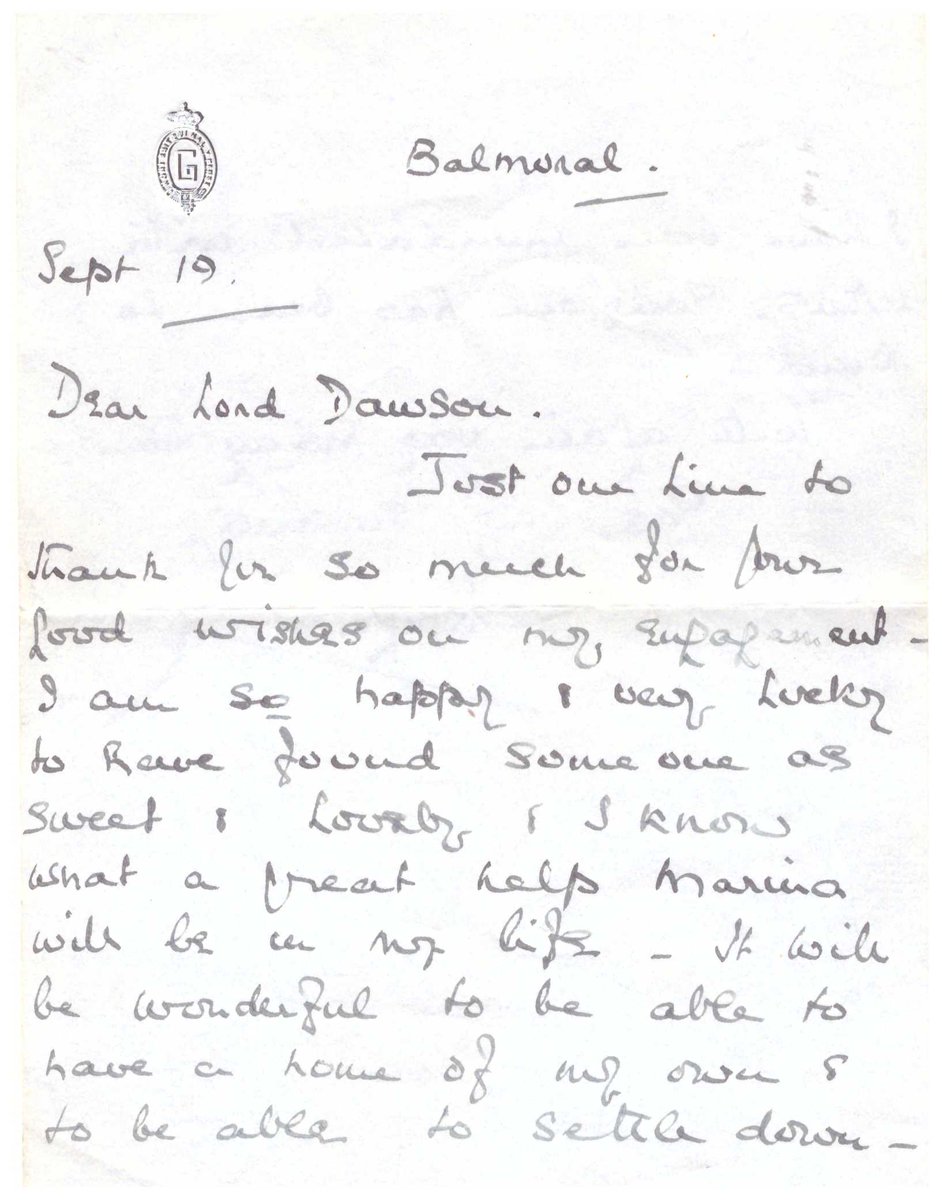 HONI SOIT QUI MAL Y PENSE
G
Balmoral.
Sept 19.
Dear Lord Dawson.
Just one line to
thank you so much for your
good wishes on my engagement –
I am so happy & very lucky
to have found someone as
sweet & lovely & I know
what a great help Marina
will be in my life – It will
be wonderful to be able to
have a home of my own &
to be able to settle down –